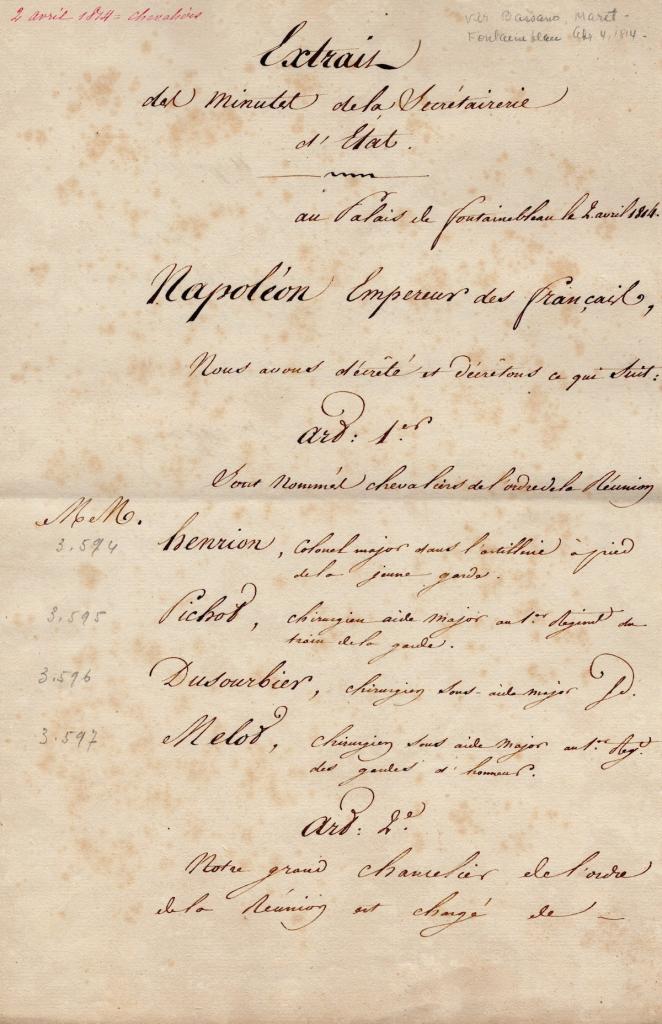 2 avril 1814 = chevaliers
Bassano, Maret -
Fontainebleau Apr 4, 1814 -
Extrait
des Minutes de la Secrétairerie
d'Etat.
au Palais de fontainebleau le 2 avril 1814.
Napoléon Empereur des français,
Nous avons décrété et décrétons ce qui suit :
Art: 1er
Sont Nommés chevaliers de l'ordre de la Réunion
M.M.
3.594 henrion, colonel major dans l'artillerie à pied
de la jeune garde.
3.595 Pichot, chirurgien aide major au 1er Régimt du
train de la garde.
3.596 Dusourbier, chirurgien sous-aide major Jd.
3.597 Melot, chirurgien sous aide major au 1er Regt
des gardes d'honneur.
Art: 2e
Notre grand chancelier de l'ordre
de la Réunion est chargé de -